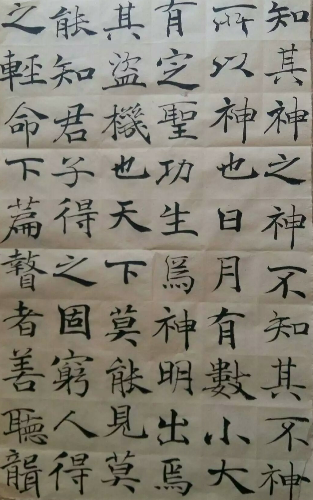 知其神之神不知其不神
所以神也日月有數小大
有定聖功生焉神明出焉
其盜機也天下莫能見莫
能知君子得之固窮人得
之輕命下篇瞽者善聽聾